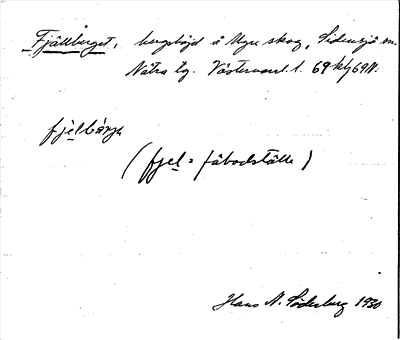 Fjällberget, bergshöjd å Myre skog, Sidensjö sn.
Nätra tg. Västernorrl. l.
fjelbärje
(fjel = fäbodställe)
Hans N. Söderberg 1930